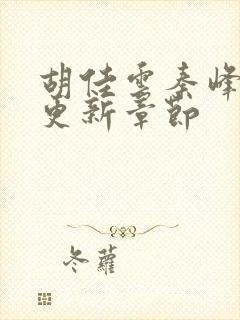 胡佳雲秦峰
更新章節
冬蘿